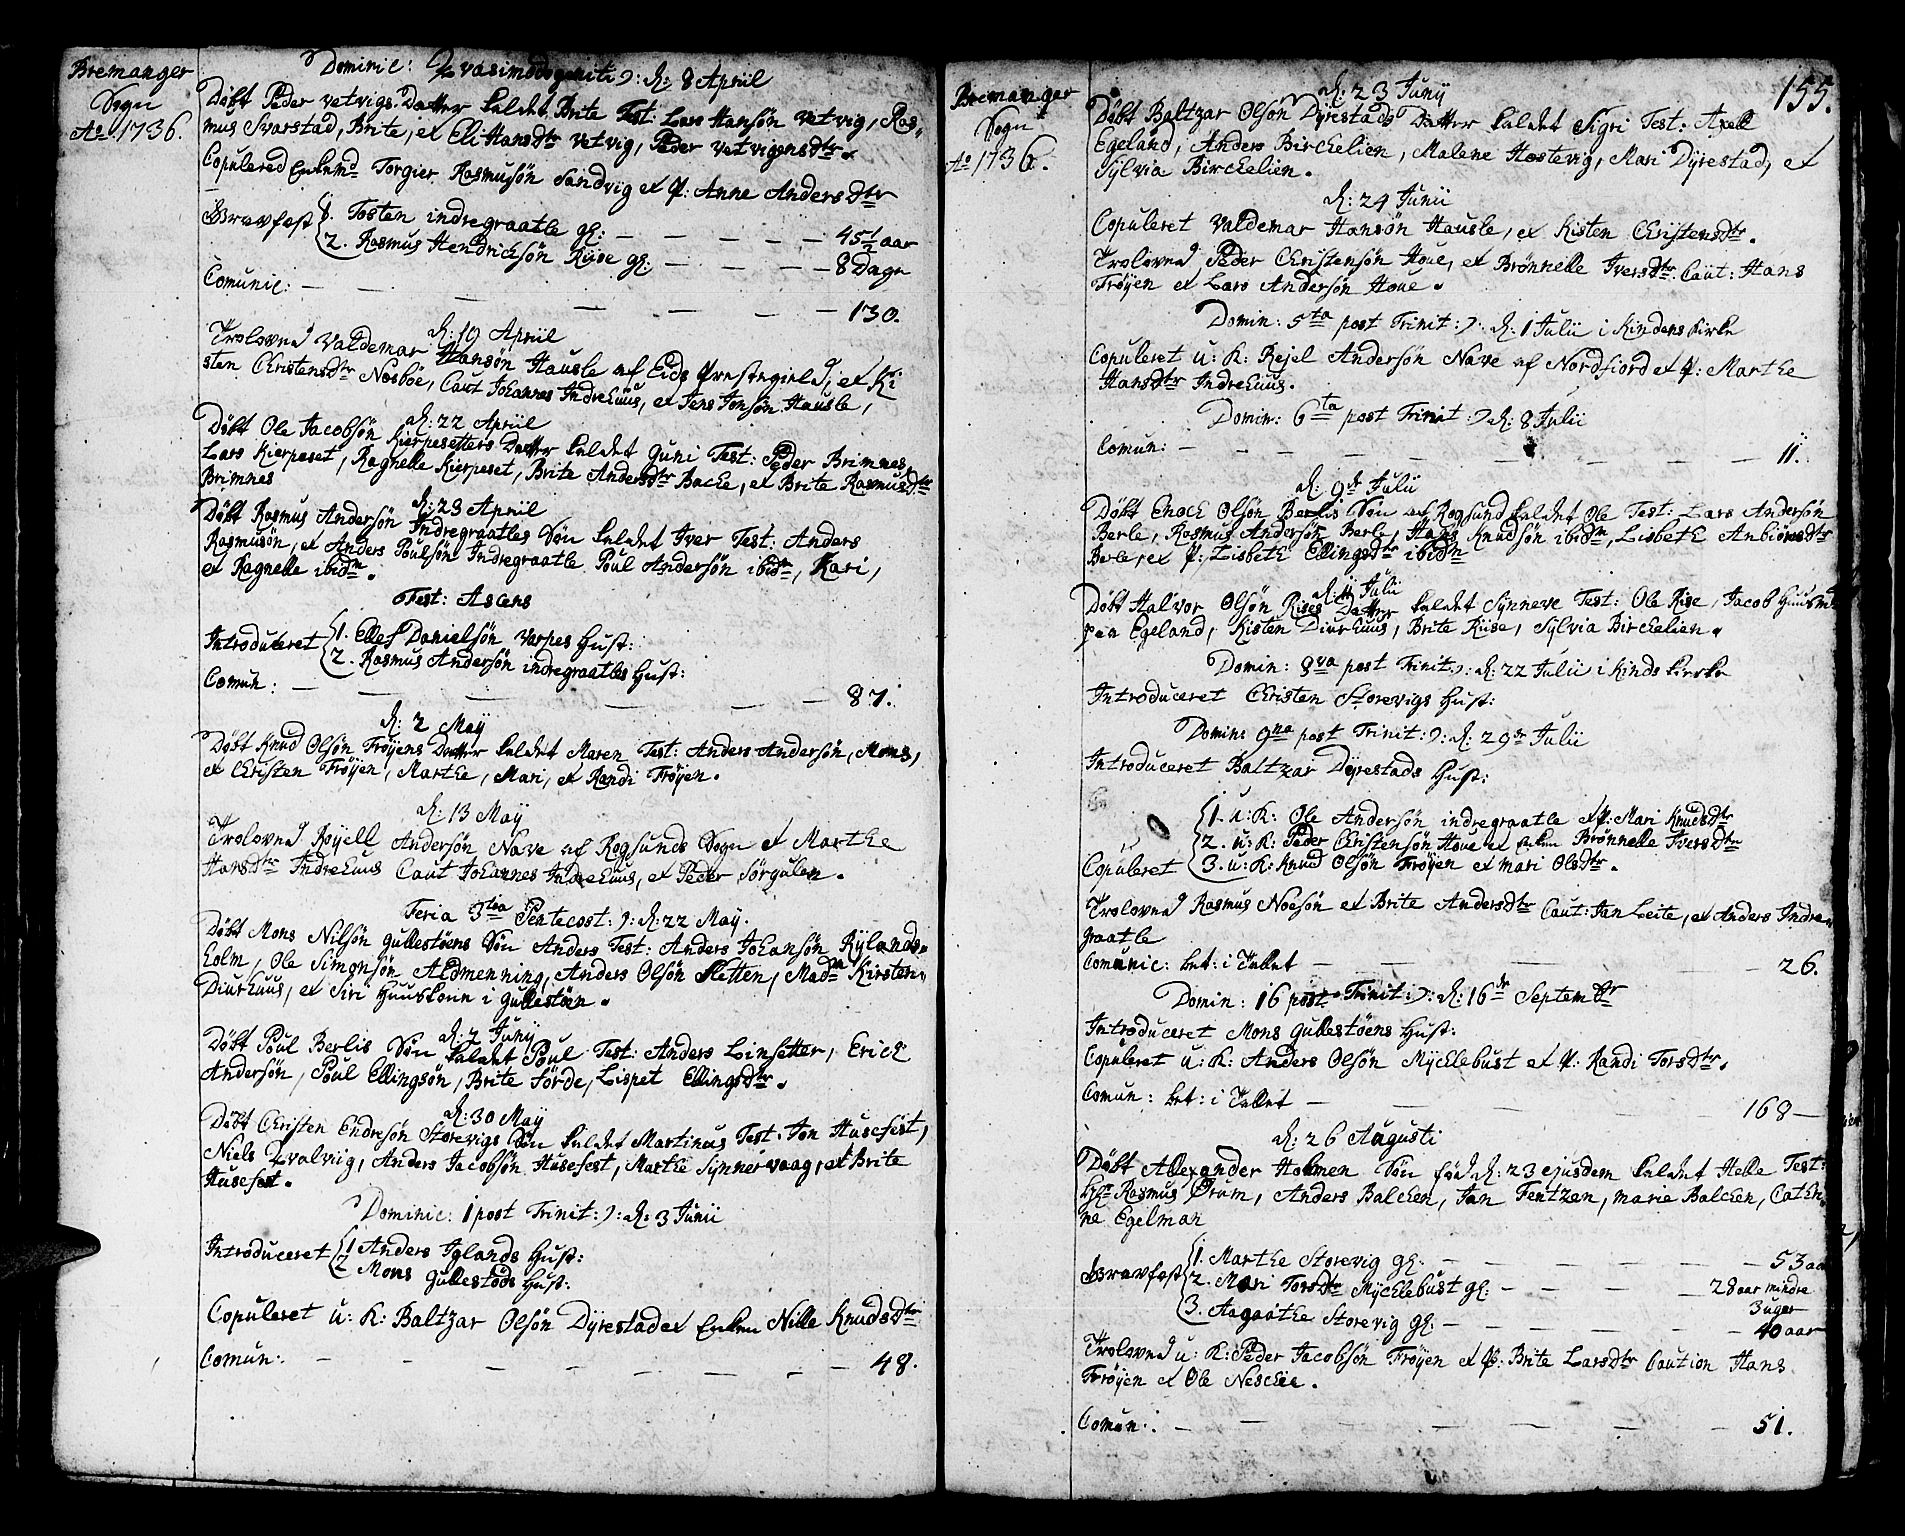 Bremanger
Sogn
Ao 1736.
Dominic: Qvasimodogeniti ): d: 8 Apriil
Døbt Peder Vetvigs Datter kaldet Brite Test: Lars Hansøn Vetvig, Ras-
mus Svarstad, Brite, et Eli Hansdtr Vetvig, Peder Vetvigensdtr.
Copulered Enkemd Torgier Rasmusøn Sandvig et P: Anne Andersdtr
Gravfæst 1. Tosten indregraatle gl: — — — — — 45½ aar
2. Rasmus Hendrichsøn Riise gl: — — — — 8 Dage
Comunic: — — — — — — 130.
d: 19 Apriil
Troloved Valdemar Hansøn Hausle af Eids Præstegield, et Ki
sten Christensdtr Nosbøe, Caut Johannes Indrehuus, et Jens Jonsøn Hausle,
d: 22 Apriil
Døbt Ole Jacobsøn Kierpesetters Datter kaldet Guni Test: Peder Brimnes,
Lars Kierpeset, Ragnelle Kierpeset, Brite Andersdtr Bache, et Brite Rasmusdtr
Brimnes
d: 23 Apriil
Døbt Rasmus Andersøn Indregraatles Søn kaldet Iver Test: Anders
Rasmusøn, et Anders Poulsøn Indregraatle Poul Andersøn ibidm, Kari,
et Ragnelle ibidm.
Fest: Ascens
Introduceret 1. Ellef Danielsøn Varpes Hust:
2. Rasmus Andersøn indregraatles Hust:
Comun: — — — — — — 87.
d: 2 Maÿ
Døbt Knud Olsøn Frøÿens Datter kaldet Maren Test: Anders Andersøn, Mons,
et Christen Frøÿen, Marthe, Mari, et Randi Frøÿen.
d: 13 Maÿ
Troloved Roÿell Andersøn Nave af Rogsunds Sogn et Marthe
Hansdtr Indrehuus Caut Johannes Indrehuus, et Peder Sørgulen.
Feria 3tia Pentecost: ): d: 22 Maÿ.
Døbt Mons Nilsøn Gullestøens Søn Anders Test: Anders Johansøn Rÿlands-
holm, Ole Simonsøn Aldmenning, Anders Olsøn Sletten, Madm Kirsten
Diurhuus, et Siri Huuskone i Gullestøen.
d: 2 Junÿ
Døbt Poul Berlis Søn kaldet Poul Test: Anders Linsetter, Erich
Andersøn, Poul Ellingsøn, Brite Førde, Lispet Ellingsdtr.
d: 30 Maÿ
Døbt Christen Endresøn Storevigs Søn kaldet Martinus Test: Jon Husefest,
Niels Qvalviig, Anders Jacobsøn Husefest, Marthe Synnervaag, et Brite
Husefest.
Dominic: 1 post Trinit: ): d: 3 Junii
Introduceret 1 Anders Iglands Hust:
2 Mons Gullestøds Hust:
Copuleret u: K: Baltzar Olsøn Dÿrestad et Enken Nille Knudsdtr
Comun: — — — — — — 48.
155.
Bremanger
Sogn
Ao 1736.
d: 23 Junÿ
Døbt Baltzar Olsøn Dyrestads Datter kaldet Sigri Test: Axell
Egeland, Anders Birchelien, Malene Hostevig, Mari Dÿrestad, et
Sÿlvia Birchelien.
d: 24 Junii
Copuleret Valdemar Hansøn Hausle, et Kisten Christensdtr.
Troloved Peder Christensøn Houe, et Brønnelle Iversdtr Caut: Hans
Frøÿen et Lars Andersøn Houe.
Domin: 5ta post Trinit: ): d: 1 Julii i Kindens kirke
Copuleret u: K: Rejel Andersøn Nave af Nordfiord et P: Marthe
Hansdtr Indrehuus.
Domin: 6ta post Trinit: ): d: 8 Julii
Comun: — — — — — — — — 11.
d: 9de Julii
Døbt Enoch Olsøn Berlis Søn af Rogsund kaldet Ole Test: Lars Andersøn
Berle, Rasmus Andersøn Berle, Hans Knudsøn ibidm, Lisbeth Anbiørnsdtr
Berle, et P: Lisbeth Ellingsdtr ibidm
d: 11 Julii
Døbt Halvor Olsøn Rises Datter kaldet Sÿnneve Test: Ole Rise, Jacob Huusmd
paa Egeland, Kisten Diurhuus, Brite Riise, Sÿlvia Birchelien.
Domin: 8va post Trinit: ): d: 22 Julii i Kinds kirke
Introduceret Christen Storevigs Hust:
Domin: 9na post Trinit: ): d: 29de Julii
Introduceret Baltzar Dÿrestads Hust:
1. u: K: Ole Andersøn indregraatle et P: Mari Knudsdtr
2. u: K: Peder Christensøn Houe et Enken Brønnelle Iversdtr
Copuleret 3. u: K: Knud Olsøn Frøÿen et Mari Olsdtr.
Troloved Rasmus Noesøn et Brite Andersdtr Caut: Jan Leite, et Anders Indre-
graatle
Comunic: bet: i Tallet — — — — — 26.
Domin: 16 post Trinit: ): d: 16de Septembr
Introduceret Mons Gullestøens Hust:
Copuleret u: K: Anders Olsøn Mÿcklebust et P: Randi Torsdtr.
Comun: bet: i Tallet — — — — — 168 —
d: 26 Augusti
Døbt Allexander Holmen Søn fød d: 23 ejusdem kaldet Helle Test:
Hr Rasmus Ørum, Anders Balchen, Jan Fentzen, Marie Balchen, Cathri-
ne Egelmar
1. Marthe Storevig gl: — — — — — 53 aar
Gravfæst 2. Mari Torsdtr Mÿcklebust gl: — — — 28 aar mindre
3 uger
3. Aagaathe Storevig gl: — — — — — 40 aar
Troloved u: K: Peder Jacobsøn Frøÿen et P: Brite Larsdtr Caution Hans
Frøÿen et Ole Neschee.
Comun: — — — — — — — 51.